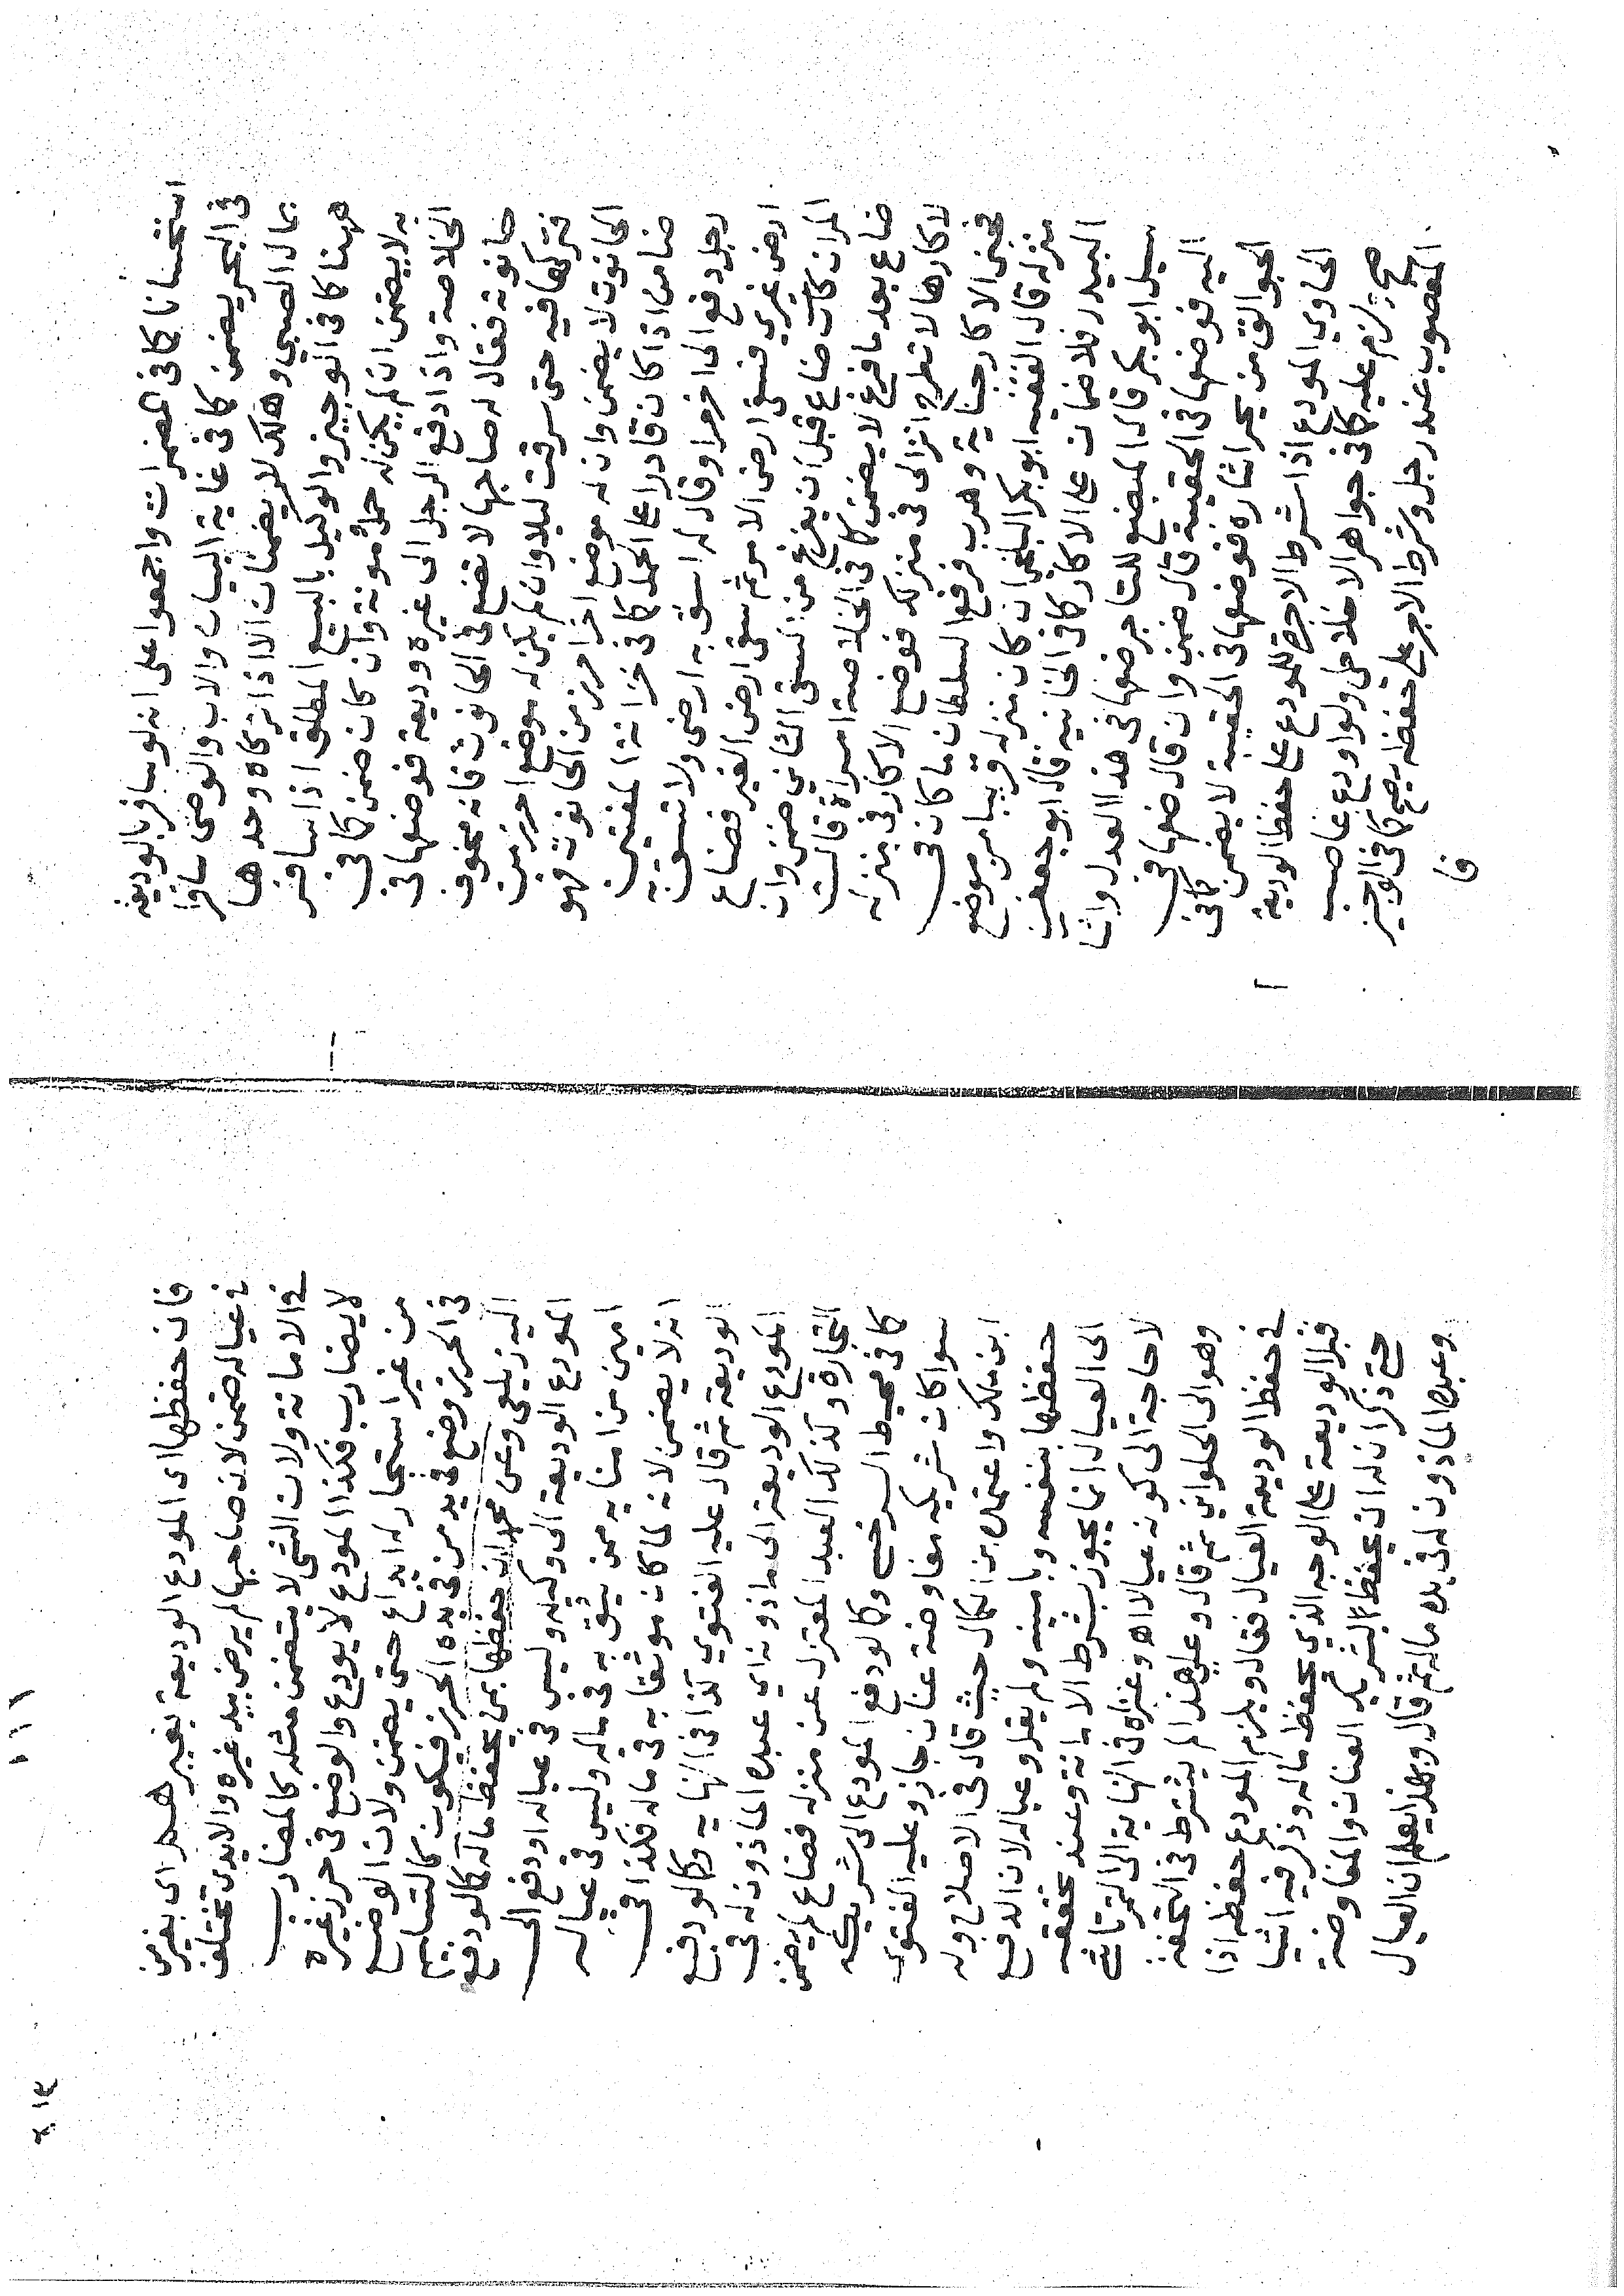 استحسانا كما في المضمرات واجمعوا على انه لو سافر بالوديعة
في البحر يضمن كما في غاية البيان والاب والوصي سافرا
بمال الصبي وهلك لا يضمنان الا اذا تركاه وحدها
ههنا كما في الوجيز والوكيل بالبيع المطلق اذا سافر
به لا يضمن ان لم يكن له حمل مونة وان كان ضمن كما في
الخلاصة واذا دفع الرجل الى غيره وديعة فوضعها في
حانوته فقال له صاحبها لا تضع في الحانوت فانه مخوف
فتركها فيه حتى سرقت ليلا وان لم يكن له موضع احرز من
الحانوت لا يضمن وان له موضع اخر احرز من الحانوت فهو
ضامن اذا كان قادرا على الحمل كما في خزانة المفتين
رجل دفع الى اخر مرا وقال له اسق به ارضي ولا تسق به
ارض غيري فسقى ارض الامر ثم سقى ارض الغير فضاع
المر ان كان ضاع قبل ان يفرغ من السقي الثاني ضمن وان
ضاع بعد ما فرغ لا يضمن كما في الخلاصة امراة قالت
لاكارها لا تطرح انزالي في منزلك فوضع الاكار في منزله
فجنى الاكار جناية وهرب فرفع السلطان ما كان في
منزله قال الفقيه ابو بكر البلخي ان كان منزله قريبا من موضع
البيدر فلا ضمان على الاكار كما في الخانية قال ابو جعفر
سيل ابو بكر قال المبضع للتاجر ضعها في هذا العدل واشا
اليه فوضعها في الحقيبة قال ضمن وان قال ضعها في
الجوالق من غير اشارة فوضعها في الحقيبة لا يضمن كما في
الحاوي المودع اذا شرط الاجرة للمودع على حفظ الوديعة
صح ولزم عليه كما في جواهر الاخلاطي ولو اودع غاصب
المغصوب عند رجل وشرط الاجر على حفظه يصح كما في الوجيز
فا
١١١
فان حفظها اى المودع الوديعة بغيرهم اى بغير من
في عياله ضمن لان صاحبها لم يرض بيد غيره والايدى تختلف
في الامانة ولان الشي لا يتضمن مثله كالمضارب
لا يضارب فكذا المودع لا يودع والوضع في حرز غيره
من غير استيجار له ايداع حتى يضمن ولان الوضع
في الحرز وضع في يد من في يده الحرز فيكون كالتسليم
اليه زيلعي وعن محمد ان حفظها بمن يحفظ ماله كالو دفع
المودع الوديعة الى وكيله وليس في عياله او دفع الى
امين من امنايه ممن يثق به في ماله وليس في عياله
انه لا يضمن لانه لما كان موثقا به في ماله فكذا في
الوديعة ثم قال عليه الفتوي كذا في النهايه وكالو دفع
المودع الوديعة الى ماذونه اي عبده الماذون له في
التجارة وكذلك العبد المعتزل عن منزله فضاع لم يضمن
كما في محيط السرخسي وكالو دفع المودع الى شريكه
سوا كان شريكه مفاوضة عنان جاز وعليه الفتوى
ابن ملك واعتمده بن الكمال حيث قال في الاصلاح وله
حفظها بنفسه وبامينه ولم يقل وعياله لان الدفع
الى العيال انما يجوز بشرط الامانة وعند تحققه
لا حاجة الى كونه عيالا اه وعزاه في النهاية الى التمرتاشي
وهو الى الحلواني ثم قال وعلى هذا لم يشترط في التحفة
في حفظ الوديعة العيال فقال ويلزم المودع حفظه اذا
قبل الوديعة على الوجه الذي يحفظ ماله وذكر فيه اشيا
حتى ذكر ان له ان يحفظ بشريك العنان والمفاوضة
وعبده الماذون له في يده ماله ثم قال وبهذا يعلم ان العيال